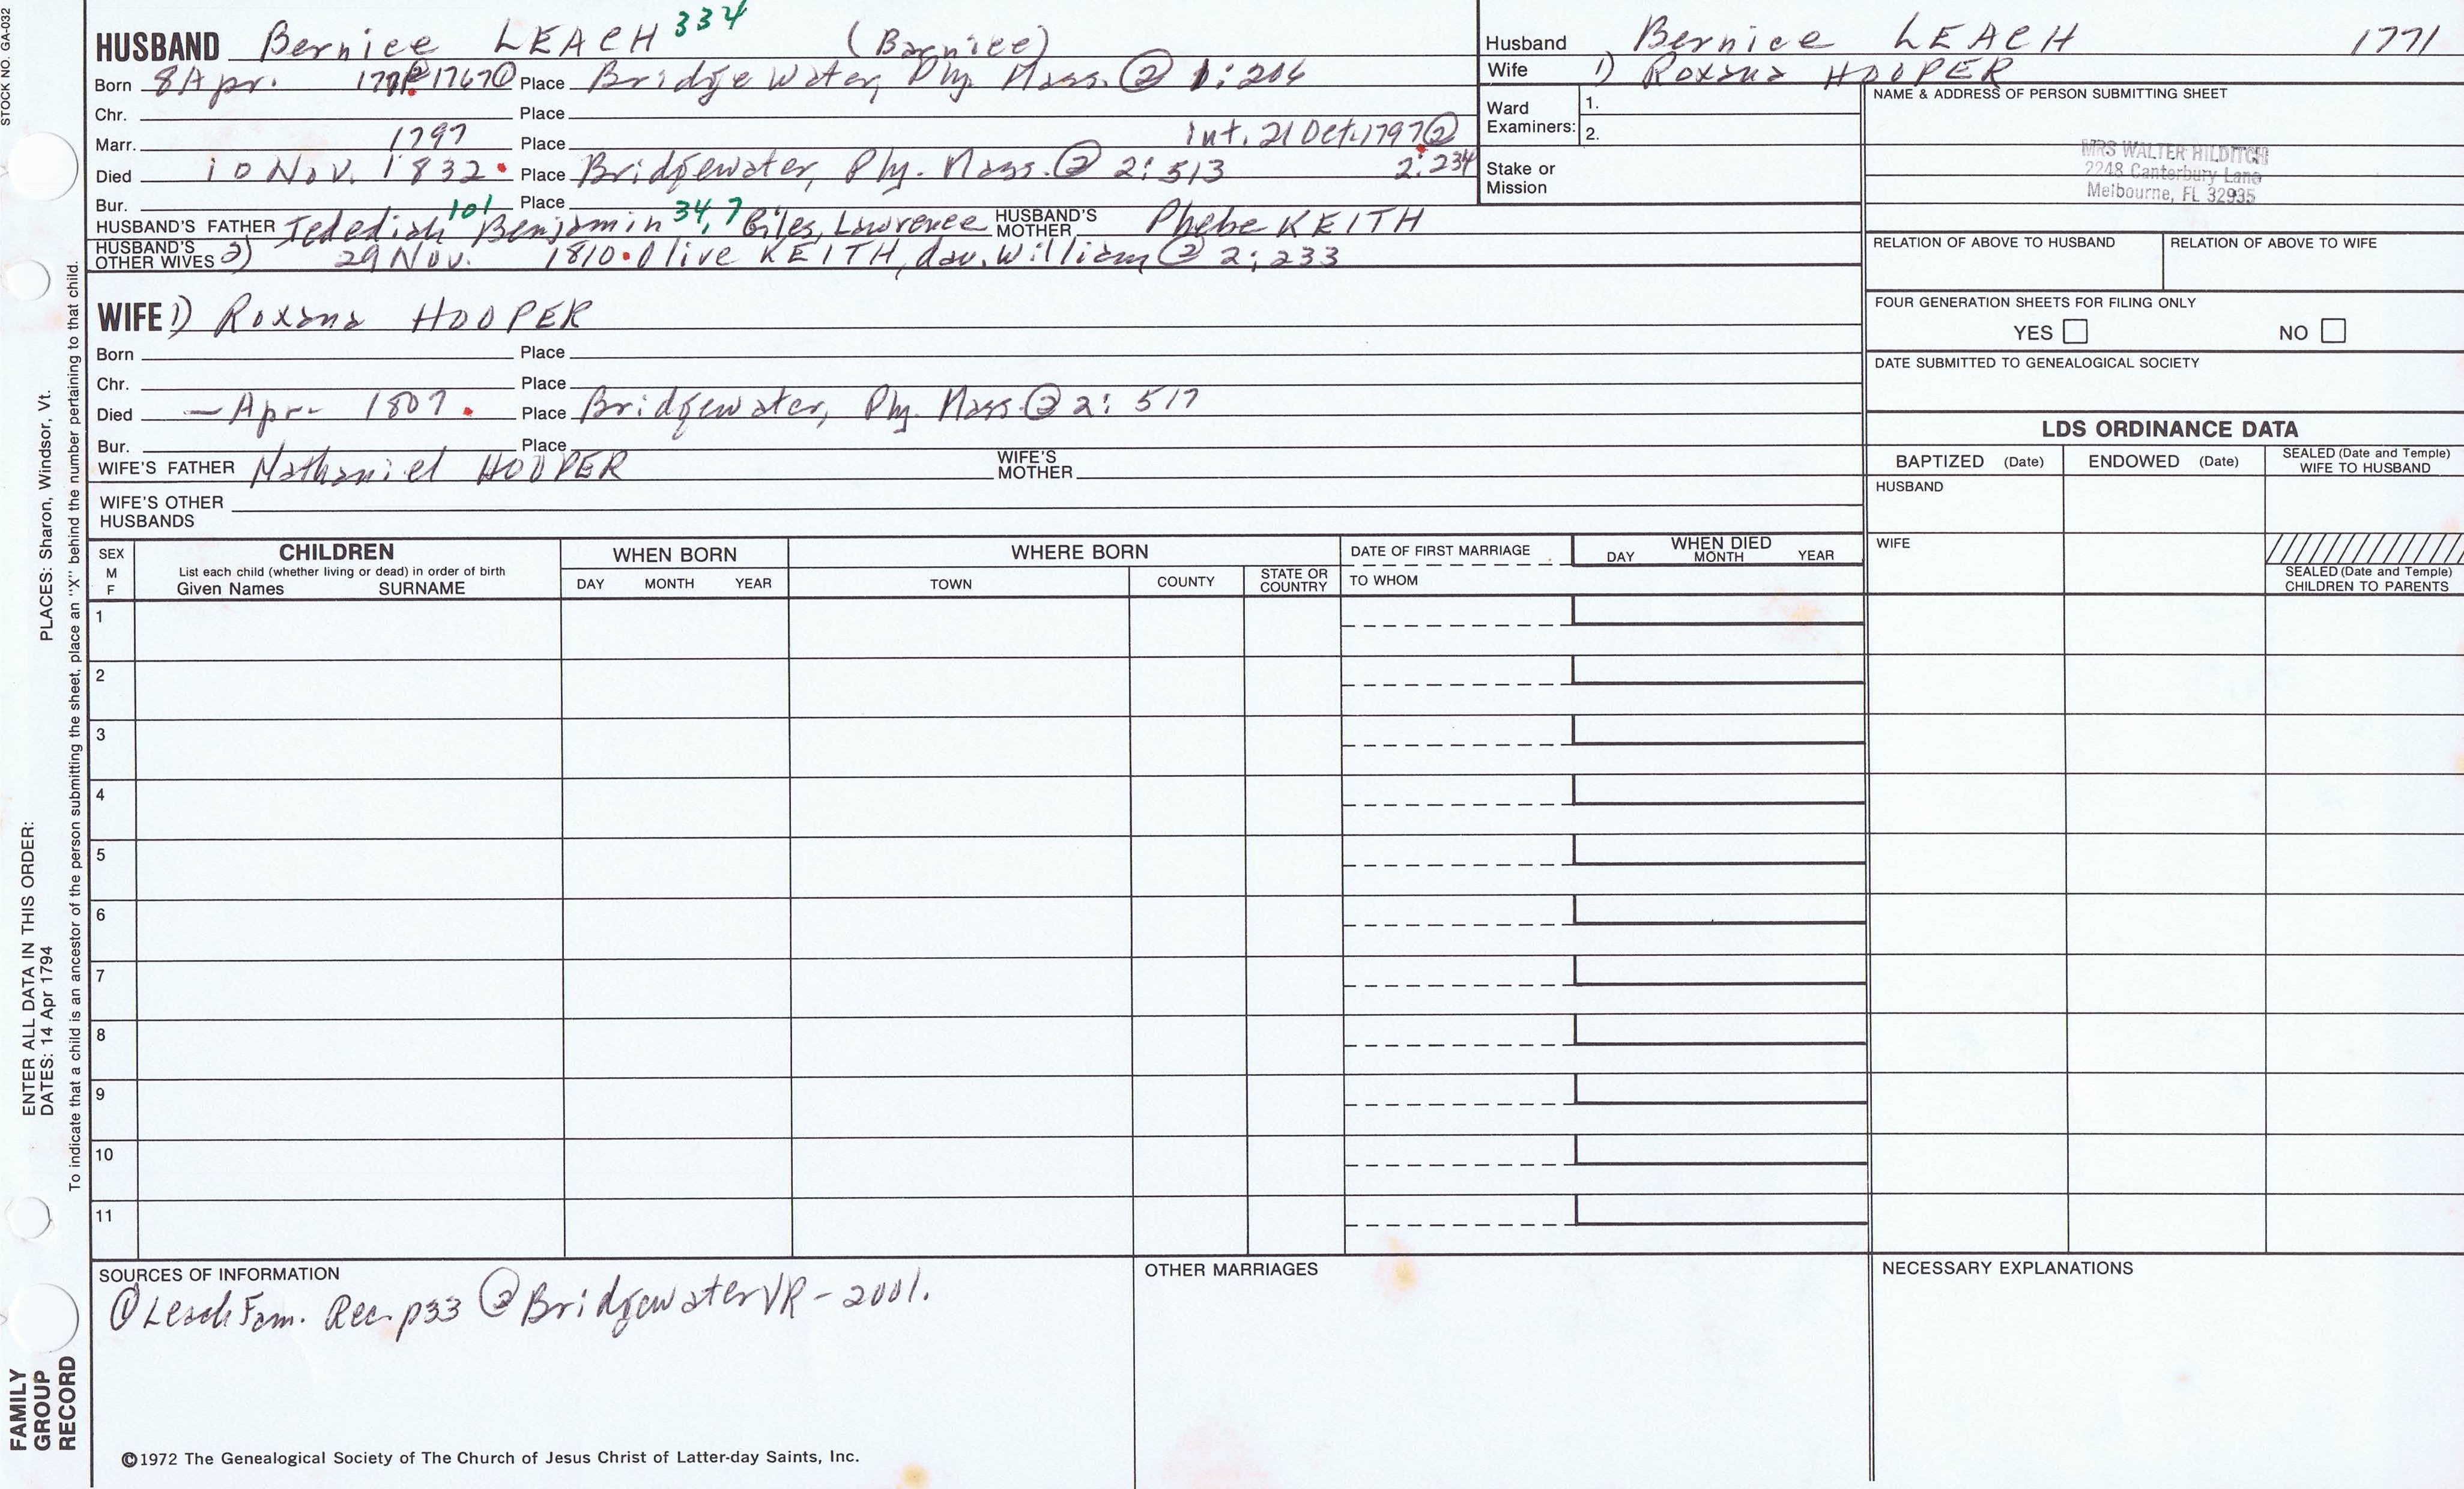 STOCK NO. GA-032
HUSBAND Bernice LEACH 334 (Barnice)
Born 8 Apr. 1771② 1767① Place Bridgewater, Ply. Mass. ② 1:206
Chr. Place
Marr. 1797 Place Int. 21 Oct. 1797②
Died 10 Nov. 1832 Place Bridgewater, Ply. Mass. ② 2:513 2:234
Bur. Place
HUSBAND'S FATHER Jedediah 101 Benjamin 34, 7 Giles, Lawrence HUSBAND'S MOTHER Phebe KEITH
HUSBAND'S OTHER WIVES 2) 29 Nov. 1810. Olive KEITH, dau. William ② 2:233
WIFE 1) Roxana HOOPER
Born Place
Chr. Place
Died — Apr- 1807. Place Bridgewater, Ply. Mass. ② 2:517
Bur. Place
WIFE'S FATHER Nathaniel HOOPER WIFE'S MOTHER
WIFE'S OTHER HUSBANDS
Husband Bernice LEACH 1771
Wife 1) Roxana HOOPER
Ward Examiners: 1.
2.
Stake or Mission
NAME & ADDRESS OF PERSON SUBMITTING SHEET
MRS WALTER HILDITCH
2248 Canterbury Lane
Melbourne, FL 32935
RELATION OF ABOVE TO HUSBAND RELATION OF ABOVE TO WIFE
FOUR GENERATION SHEETS FOR FILING ONLY
YES NO
DATE SUBMITTED TO GENEALOGICAL SOCIETY
LDS ORDINANCE DATA
BAPTIZED (Date) ENDOWED (Date) SEALED (Date and Temple) WIFE TO HUSBAND
HUSBAND
WIFE
SEALED (Date and Temple) CHILDREN TO PARENTS
SEX M F CHILDREN WHEN BORN WHERE BORN DATE OF FIRST MARRIAGE WHEN DIED
List each child (whether living or dead) in order of birth
Given Names SURNAME DAY MONTH YEAR TOWN COUNTY STATE OR COUNTRY TO WHOM DAY MONTH YEAR
1
2
3
4
5
6
7
8
9
10
11
SOURCES OF INFORMATION
① Leach Fam. Rec. p33 ② Bridgewater VR - 2001.
OTHER MARRIAGES
NECESSARY EXPLANATIONS
©1972 The Genealogical Society of The Church of Jesus Christ of Latter-day Saints, Inc.
FAMILY GROUP RECORD
ENTER ALL DATA IN THIS ORDER:
DATES: 14 Apr 1794 PLACES: Sharon, Windsor, Vt.
To indicate that a child is an ancestor of the person submitting the sheet, place an "X" behind the number pertaining to that child.